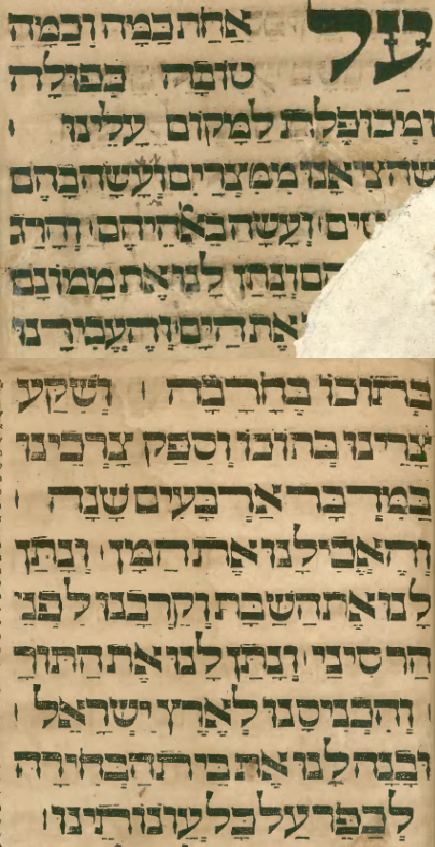 עַל אַחַת כַּמָּה וְכַמָּה
טוֹבָה כְּפוּלָה
וּמְכוּפֶּלֶת לַמָּקוֹם עָלֵינוּ
שֶׁהוֹצִיאָנוּ מִמִּצְרַיִם וְעָשָׂה בָהֶם
וְעָשָׂה בֵאלֹהֵיהֶם וְהָרַג
וְנָתַן לָנוּ אֶת מָמוֹנָם
אֶת הַיָּם וְהֶעֱבִירָנוּ
בְּתוֹכוֹ בֶּחָרָבָה וְשִׁקַּע
צָרֵינוּ בְּתוֹכוֹ וְסִפֵּק צָרְכֵינוּ
בַּמִּדְבָּר אַרְבָּעִים שָׁנָה
וְהֶאֱכִילָנוּ אֶת הַמָּן וְנָתַן
לָנוּ אֶת הַשַּׁבָּת וְקֵרְבָנוּ לִפְנֵי
הַר סִינַי וְנָתַן לָנוּ אֶת הַתּוֹרָ
וְהִכְנִיסָנוּ לְאֶרֶץ יִשְׂרָאֵל
וּבָנָה לָנוּ אֶת בֵּית הַבְּחִירָה
לְכַפֵּר עַל כָּל עֲוֹנוֹתֵינוּ